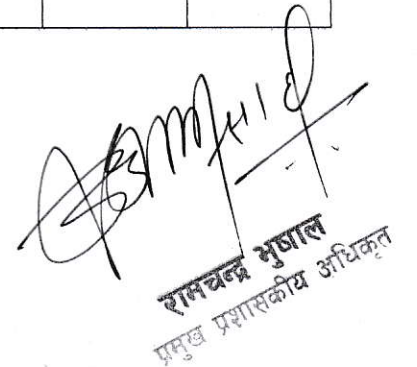 रामचन्द्र भुषाल
प्रमुख प्रशासकीय अधिकृत